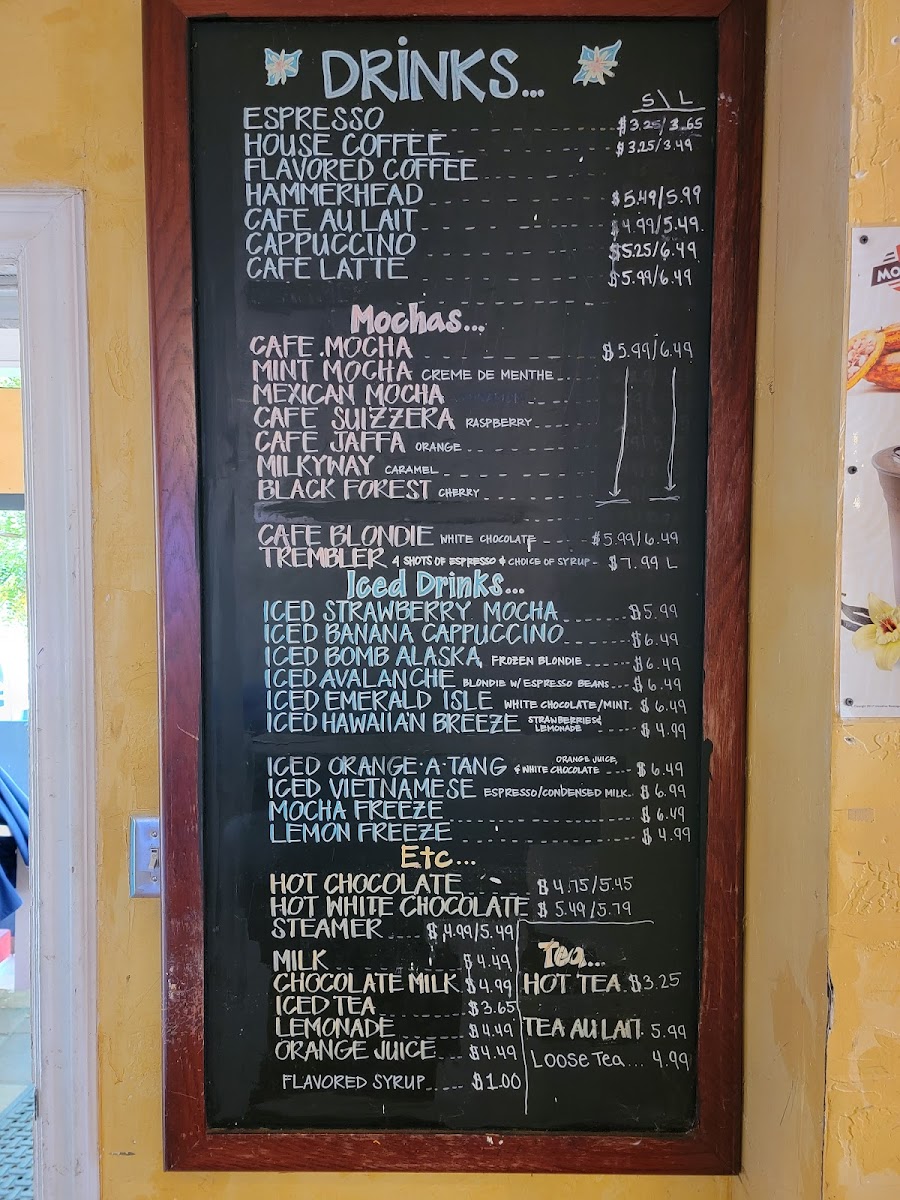 DRINKS...
S \ L
ESPRESSO $3.25/3.65
HOUSE COFFEE $3.25/3.49
FLAVORED COFFEE
HAMMERHEAD $5.49/5.99
CAFE AU LAIT $4.99/5.49
CAPPUCCINO $5.25/6.49
CAFE LATTE $5.99/6.49
Mochas...
CAFE MOCHA $5.99/6.49
MINT MOCHA CREME DE MENTHE
MEXICAN MOCHA
CAFE SUIZZERA RASPBERRY
CAFE JAFFA ORANGE
MILKYWAY CARAMEL
BLACK FOREST CHERRY
CAFE BLONDIE WHITE CHOCOLATE $5.99/6.49
TREMBLER 4 SHOTS OF ESPRESSO & CHOICE OF SYRUP $7.99 L
Iced Drinks...
ICED STRAWBERRY MOCHA $5.99
ICED BANANA CAPPUCCINO $6.49
ICED BOMB ALASKA FROZEN BLONDIE $6.49
ICED AVALANCHE BLONDIE W/ ESPRESSO BEANS $6.49
ICED EMERALD ISLE WHITE CHOCOLATE/MINT $6.49
ICED HAWAIIAN BREEZE STRAWBERRIES & LEMONADE $4.99
ICED ORANGE·A·TANG ORANGE JUICE, & WHITE CHOCOLATE $6.49
ICED VIETNAMESE ESPRESSO/CONDENSED MILK $6.99
MOCHA FREEZE $6.49
LEMON FREEZE $4.99
Etc...
HOT CHOCOLATE $4.75/5.45
HOT WHITE CHOCOLATE $5.49/5.79
STEAMER $4.99/5.49
MILK $4.49
CHOCOLATE MILK $4.99
ICED TEA $3.65
LEMONADE $4.49
ORANGE JUICE $4.49
FLAVORED SYRUP $1.00
Tea...
HOT TEA $3.25
TEA AU LAIT 5.99
Loose Tea... 4.99
MO